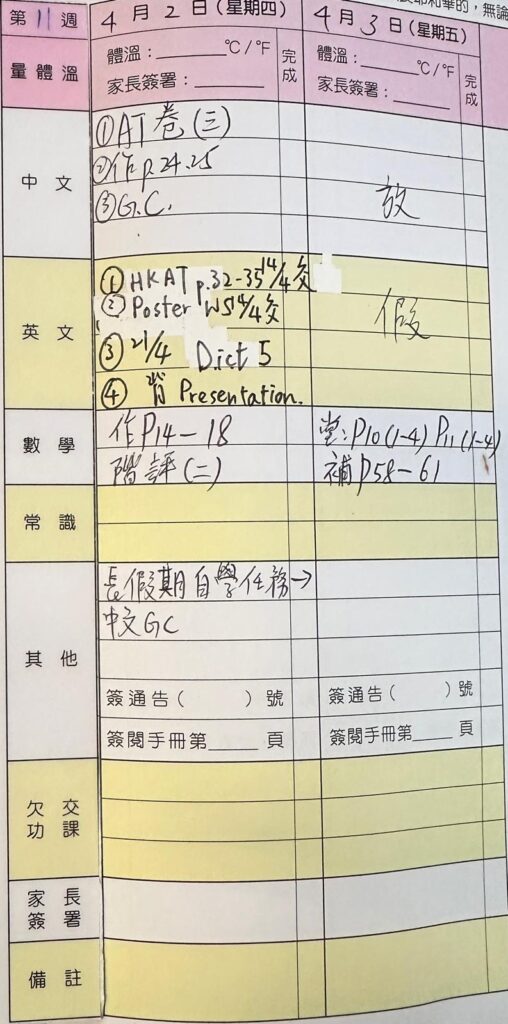 的，無論
第 11 週
4 月 2 日 (星期四)
4 月 3 日 (星期五)
量體溫
體溫：______ °C / °F
家長簽署：______
完成
體溫：______ °C / °F
家長簽署：______
完成
中 文
① AT 卷 (三)
② 作 p.24.25
③ G.C.
放
英 文
① HKAT p.32-35 14/4交
② Poster WS 14/4交
③ 21/4 Dict 5
④ 背 Presentation.
假
數 學
作 P14-18
階評 (二)
堂: P10 (1-4) P11 (1-4)
補 P58-61
常 識
其 他
長假期自學任務→
中文GC
簽通告 ( ) 號
簽閱手冊第____ 頁
簽通告 ( ) 號
簽閱手冊第____ 頁
欠 交
功 課
家 長
簽 署
備 註